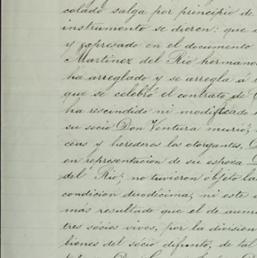 colado salga por principio de
instrumento se dieron: que a
y expresado en el documento
Martinez del Rio hermano
ha arreglado y se arregla á l
que se celebró el contrato de C
ha rescindido ni modificado
su socio Don Ventura murió,
ceas y herederos los otorgantes, D
en representacion de su esposa D
del Rio; no tuvieron objeto la
condicion duodécima; ni este
más resultado que el de aum
tres sócios vivos, por la division
bienes del socio difunto, de tal